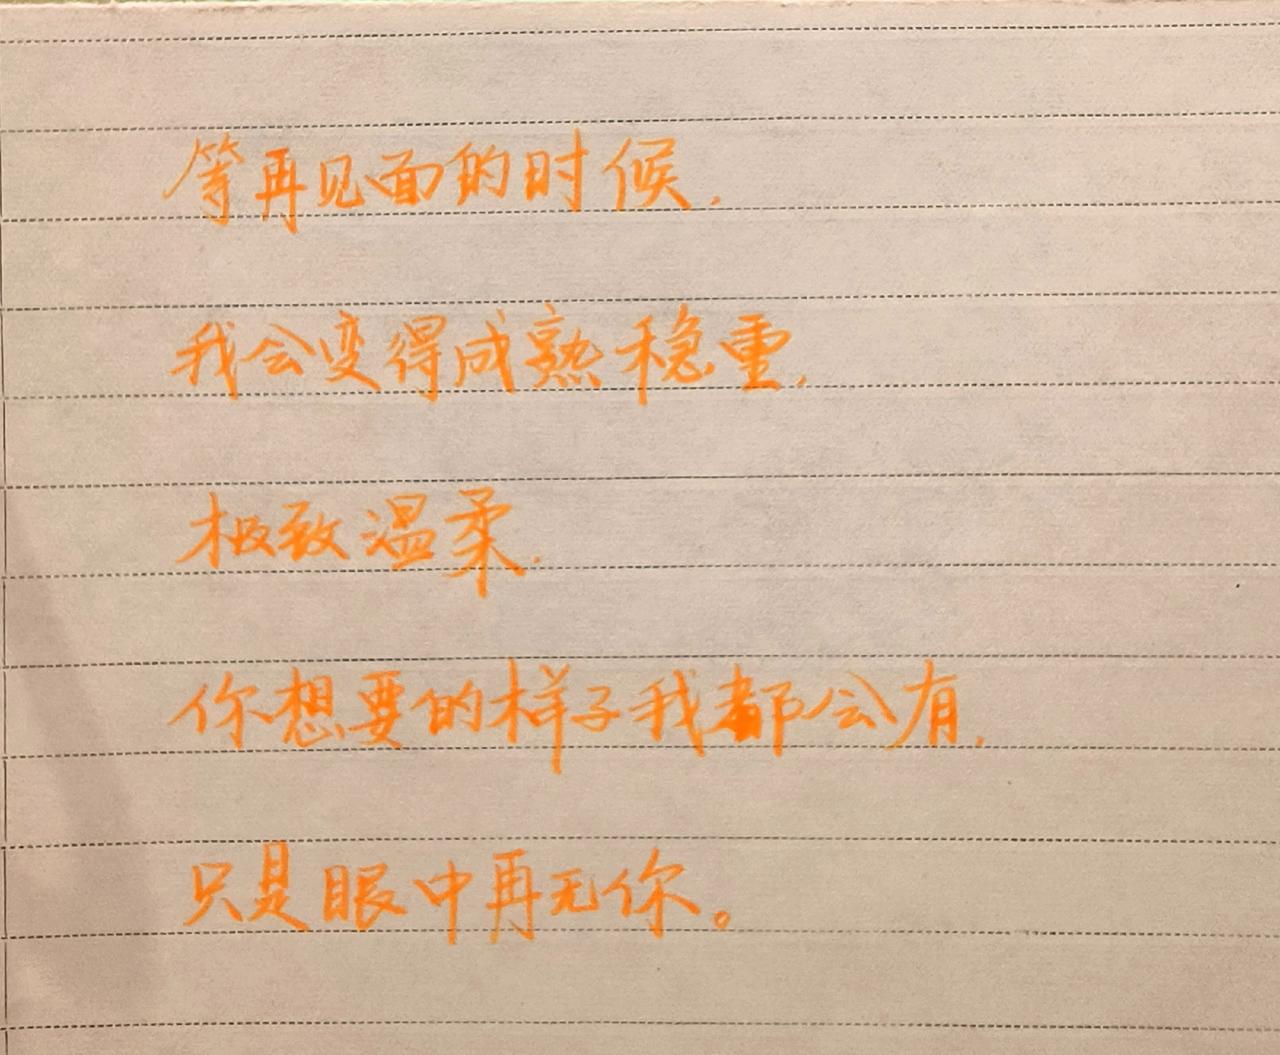 等再见面的时候,
我会变得成熟稳重,
极致温柔.
你想要的样子我都会有,
只是眼中再无你。